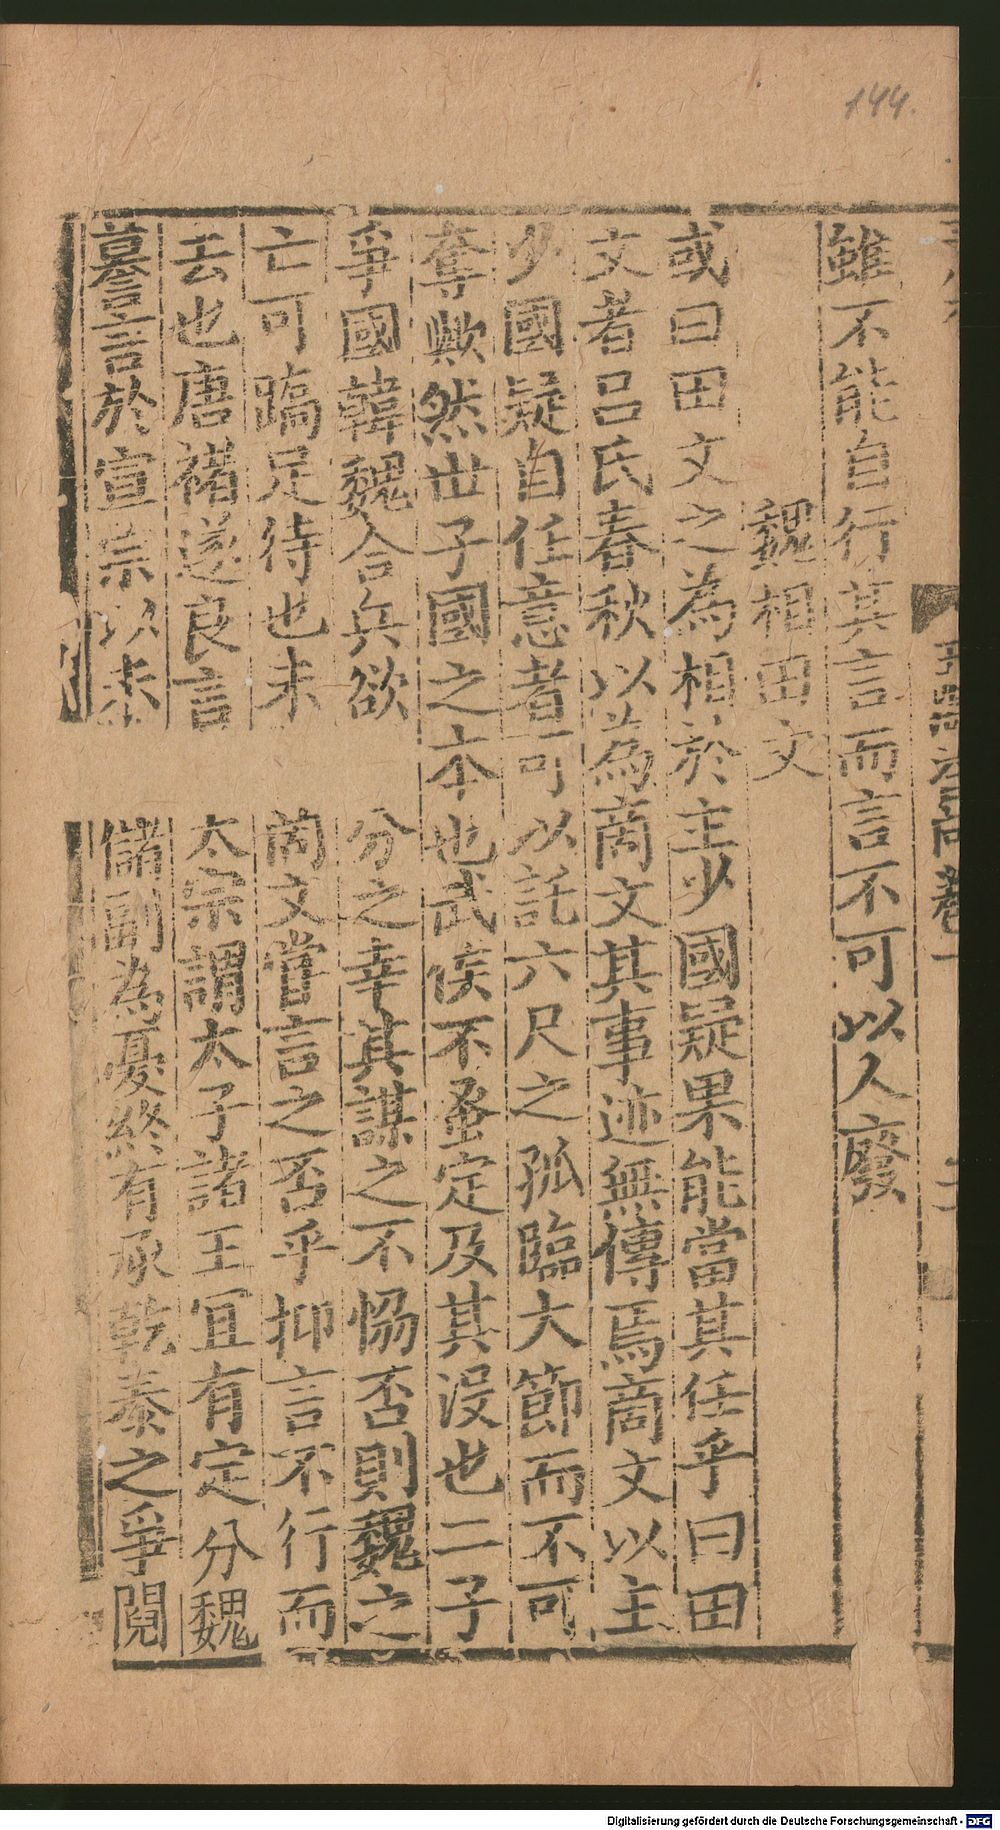 144.
雖不能自行其言而言不可以人廢
魏相田文
或曰田文之為相於主少國疑果能當其任乎曰田
文者呂氏春秋以為商文其事迹無傳焉商文以主
少國疑自任意者可以託六尺之孤臨大節而不可
奪歟然世子國之本也武侯不蚤定及其沒也二子
爭國韓魏合兵欲分之幸其謀之不恊否則魏之
亡可蹻足待也未商文嘗言之否乎抑言不行而
去也唐褚遂良言太宗謂太子諸王宜有定分魏
謩言於宣宗以未儲副為憂終有承乾泰之爭閱
Digitalisierung gefördert durch die Deutsche Forschungsgemeinschaft - DFG